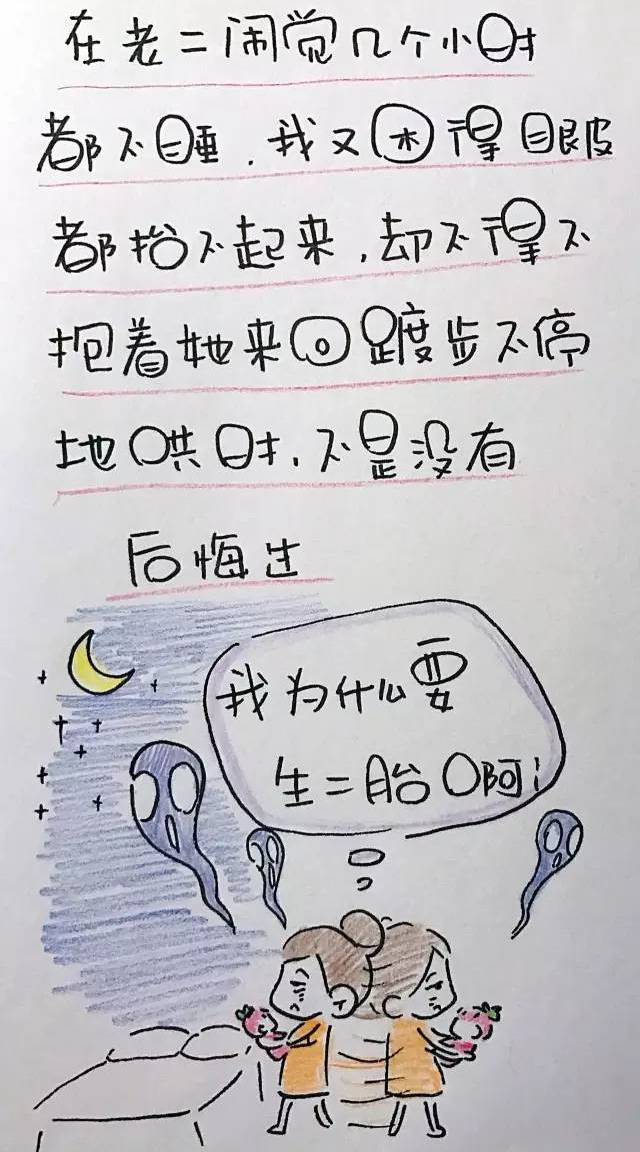 在老二闹觉几个小时
都不睡，我又困得眼皮
都抬不起来，却不得不
抱着她来回踱步不停
地哄时，不是没有
后悔过
我为什么要
生二胎啊！